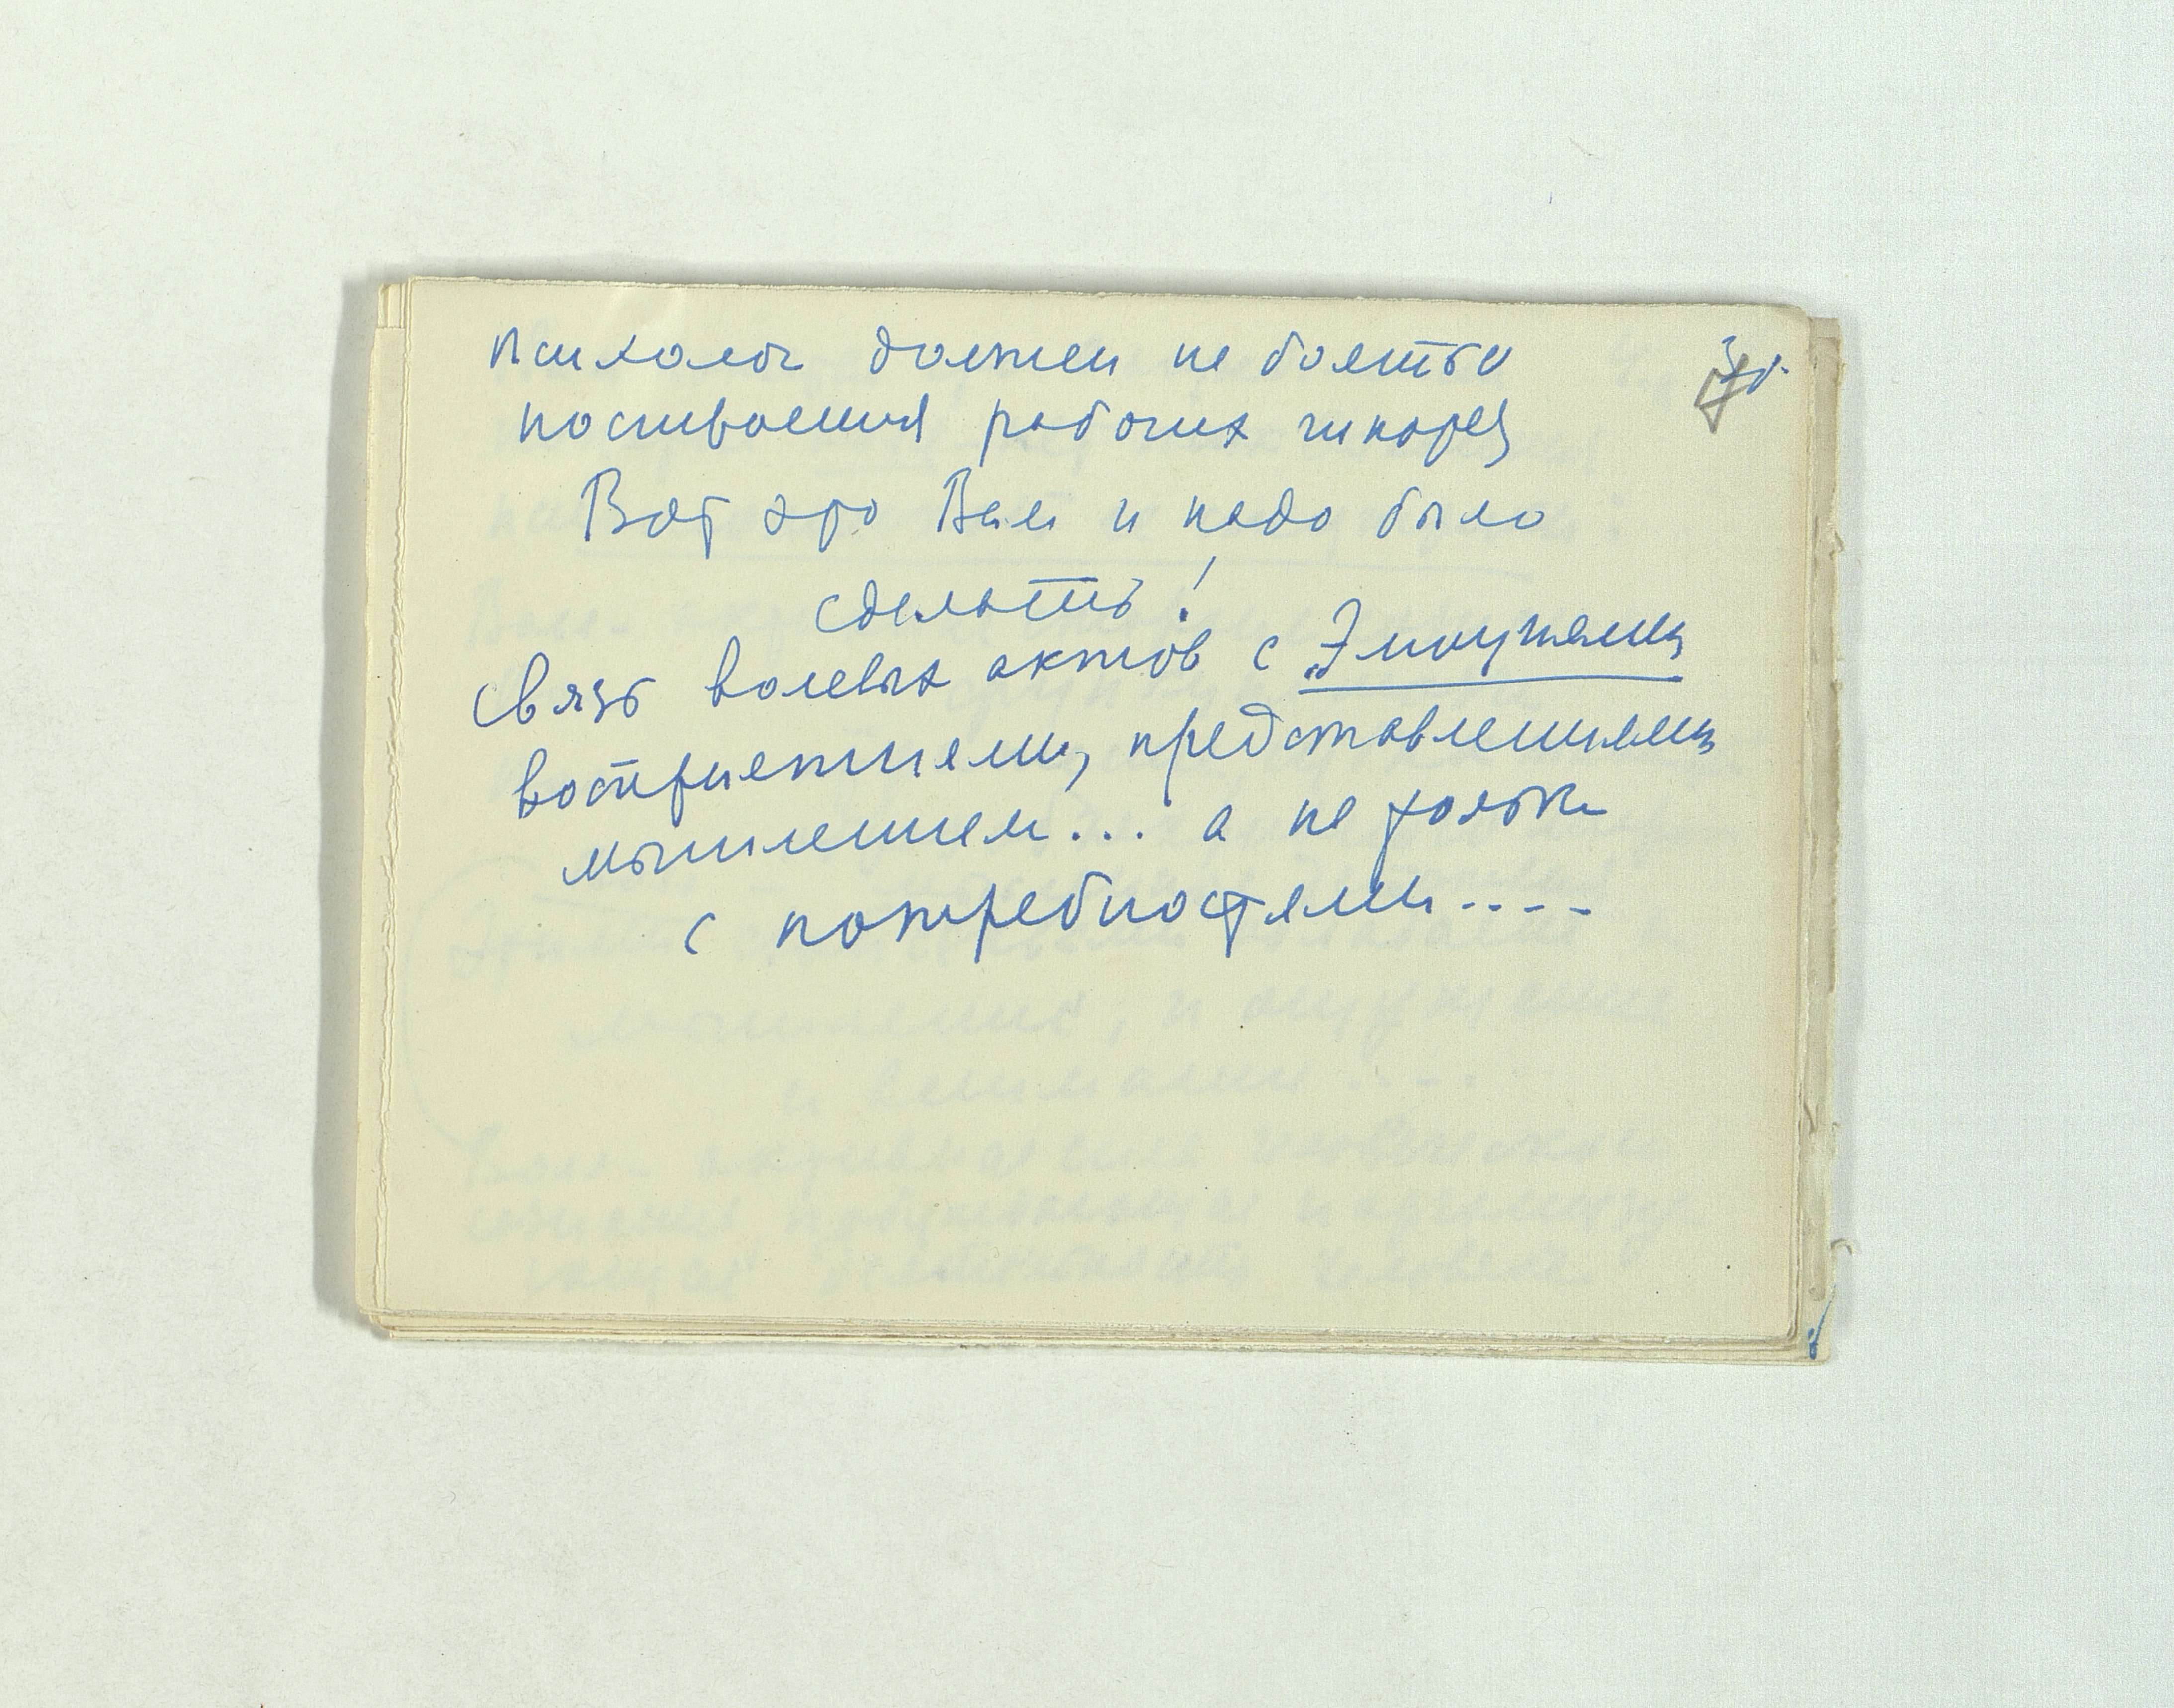 психолог должен не бояться
посивления рабочих гипотез
Вот это Вам и надо было
сделать!
Связь волевых актов с Эмоциями
восприятиями, представлениями
мышлением... а не только
с потребностями....